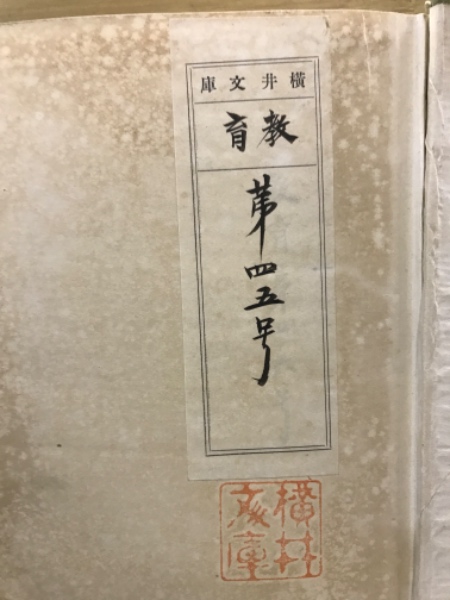 横井文庫
教育
第四五号
横井
文庫